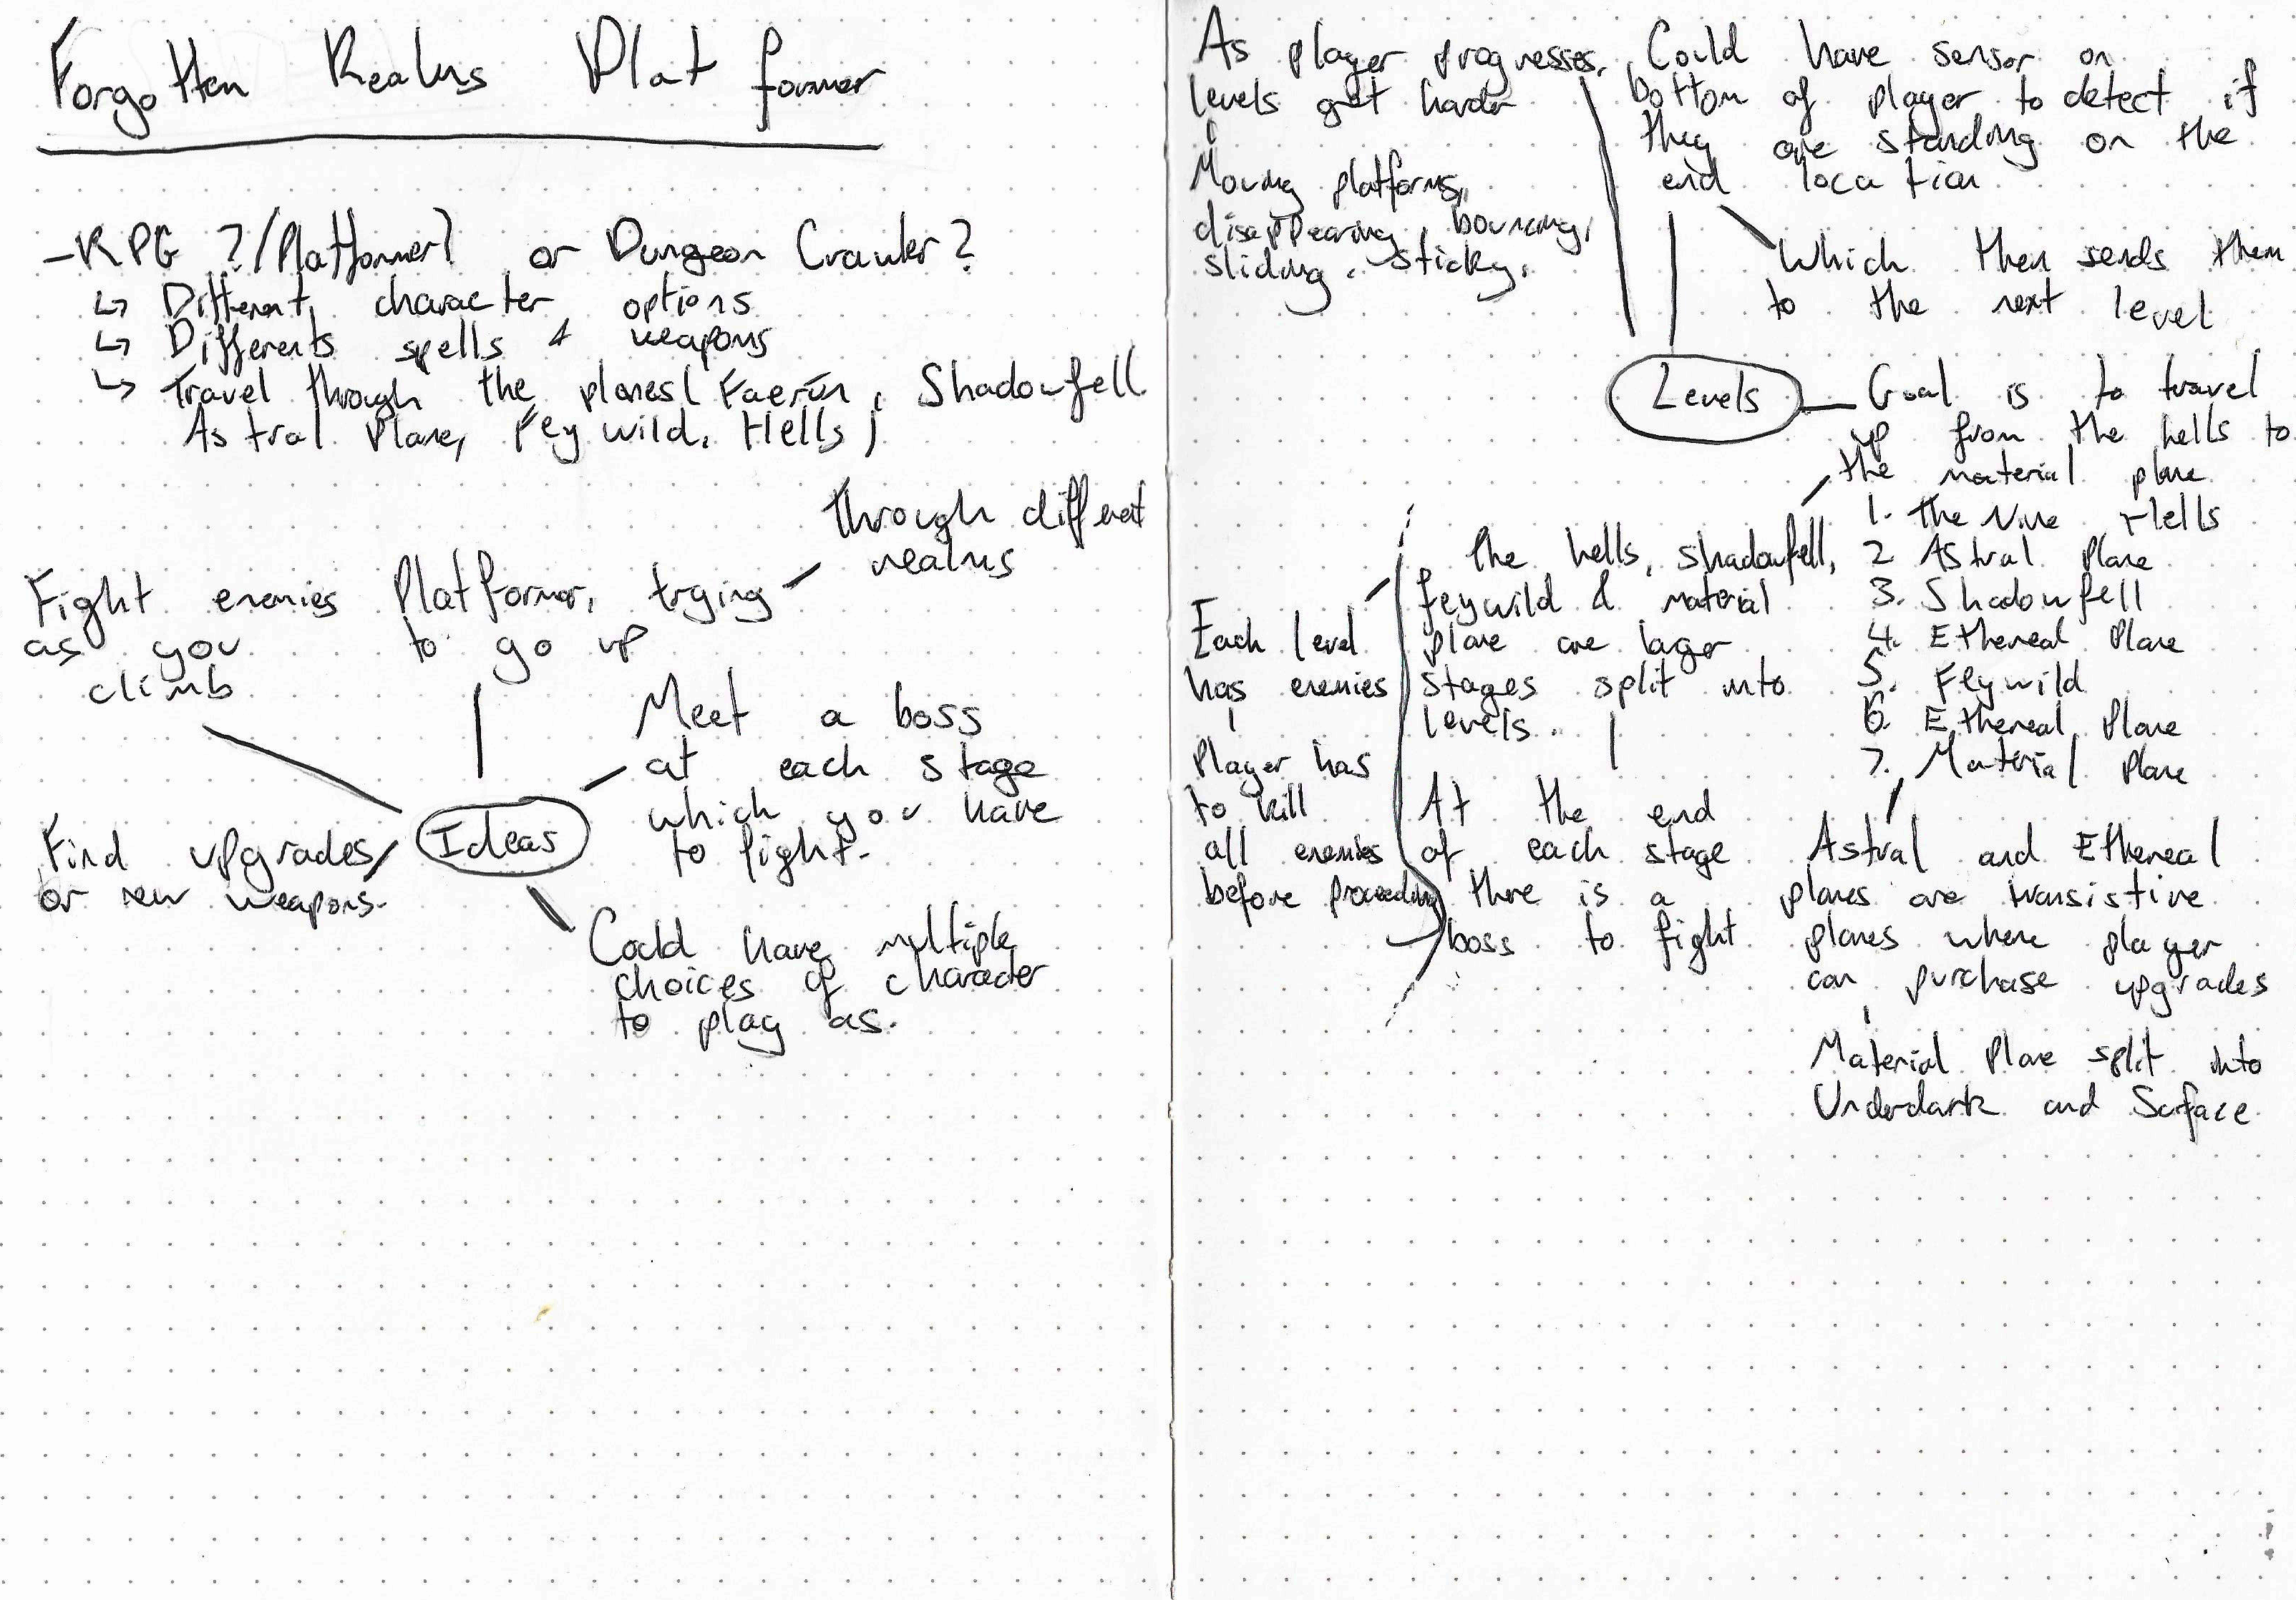 Forgotten Realms Platformer
-RPG ?/Platformer? or Dungeon Crawler?
↳ Different character options
↳ Differents spells & weapons
↳ Travel through the planes (Faerûn, Shadowfell
Astral Plane, Feywild, Hells)
through different
realms
Platformer, trying
to go up
Fight enemies
as you
climb
Meet a boss
at each stage
which you have
to fight.
Ideas
Find upgrades
or new weapons.
Could have multiple
choices of character
to play as.
As player progresses,
levels get harder
Moving platforms,
disappearing, bouncing,
sliding, sticky,
Could have sensor on
bottom of player to detect if
they are standing on the
end location
Which then sends them
to the next level
Levels
Goal is to travel
up from the hells to
the material plane
1. The Nine Hells
2 Astral Plane
3. Shadowfell
4. Ethereal Plane
5. Feywild
6. Ethereal Plane
7. Material Plane
The hells, shadowfell,
feywild & material
plane are larger
stages split into
levels.
Each level
has enemies
Player has
to kill
all enemies
before proceeding
At the end
of each stage
there is a
boss to fight
Astral and Ethereal
planes are transistive
planes where player
can purchase upgrades
Material Plane split into
Underdark and Surface